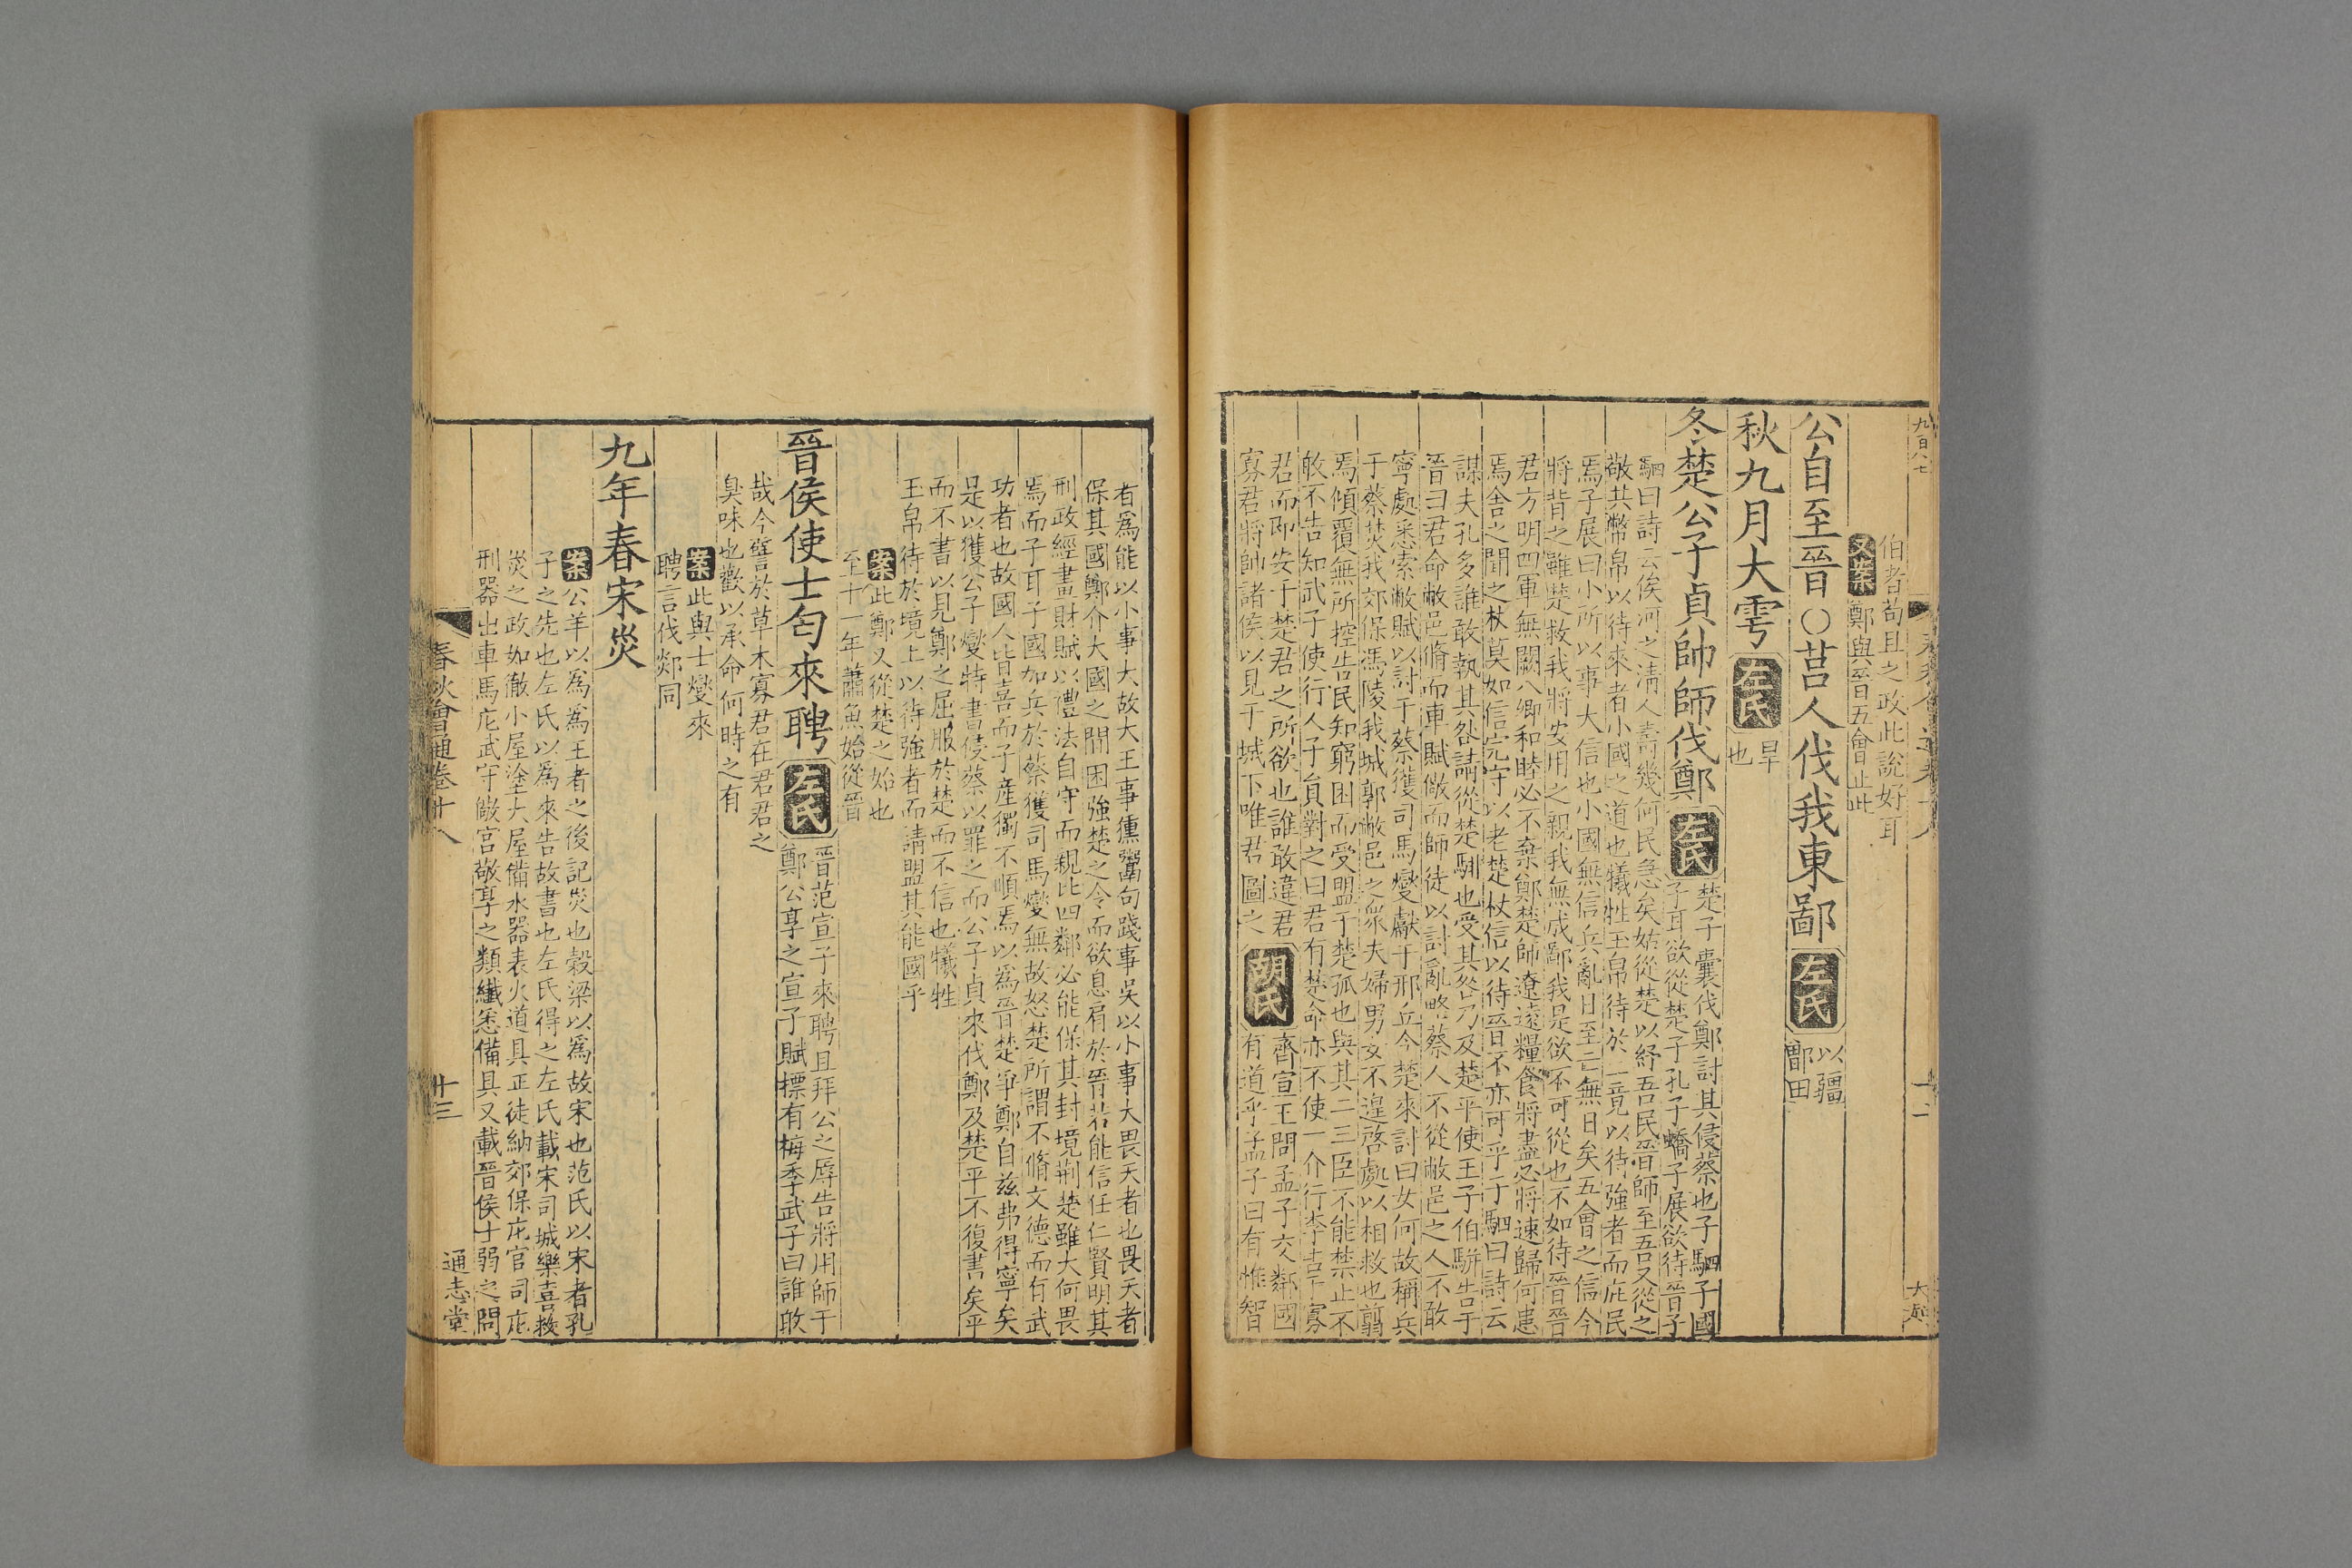 伯者苟且之政此說好耳
又案 鄭與晉五會止此
公自至晉○莒人伐我東鄙 左氏 以疆
鄫田
秋九月大雩 左氏 旱
也
冬楚公子貞帥師伐鄭 左氏 楚子囊伐鄭討其侵蔡也子駟子國
子耳欲從楚子孔子蟜子展欲待晉子
駟曰詩云俟河之清人壽幾何民急矣姑從楚以紓吾民晉師至吾又從之
敬共幣帛以待來者小國之道也犧牲玉帛待於二竟以待強者而庇民
焉子展曰小所以事大信也小國無信兵亂日至亡無日矣五會之信今
將背之雖楚救我將安用之親我無成鄙我是欲不可從也不如待晉晉
君方明四軍無闕八卿和睦必不棄鄭楚師遼遠糧食將盡必將速歸何患
焉舍之聞之杖莫如信完守以老楚杖信以待晉不亦可乎子駟曰詩云
謀夫孔多誰敢執其咎請從楚騑也受其咎乃及楚平使王子伯駢告于
晉曰君命敝邑脩而車賦儆而師徒以討亂略蔡人不從敝邑之人不敢
寧處悉索敝賦以討于蔡獲司馬燮獻于邢丘今楚來討曰女何故稱兵
于蔡焚我郊保馮陵我城郭敝邑之衆夫婦男女不遑啓處以相救也翦
焉傾覆無所控告民知窮困而受盟于楚孤也與其二三臣不能禁止不
敢不告知武子使行人子員對之曰君有楚命亦不使一介行李告于寡
君而即安于楚君之所欲也誰敢違君
寡君將帥諸侯以見于城下唯君圖之 胡氏 齊宣王問孟子交鄰國
有道乎孟子曰有惟智
者為能以小事大故大王事獯鬻句踐事吳以小事大畏天者也畏天者
保其國鄭介大國之間困強楚之令而欲息肩於晉若能信任仁賢明其
刑政經畫財賦以禮法自守而親比四鄰必能保其封境荆楚雖大何畏
焉而子耳子國加兵於蔡獲司馬燮無故怒楚所謂不脩文德而有武
功者也故國人皆喜而子產獨不順焉以為晉楚爭鄭自兹弗得寧矣
是以獲公子燮特書侵蔡以罪之而公子貞來伐鄭及楚平不復書矣平
而不書以見鄭之屈服於楚而不信也犧牲
玉帛待於境上以待強者而請盟其能國乎
案 此鄭又從楚之始也
至十一年蕭魚始從晉
晉侯使士匄來聘 左氏 晉范宣子來聘且拜公之辱告將用師于
鄭公享之宣子賦摽有梅季武子曰誰敢
哉今譬於草木寡君在君君之
臭味也歡以承命何時之有
案 此與士燮來
聘言伐郯同
九年春宋災
案 公羊以為為王者之後記災也穀梁以為故宋也范氏以宋者孔
子之先也左氏以為來告故書也左氏得之左氏載宋司城樂喜救
災之政如徹小屋塗大屋備水器表火道具正徒納郊保庀官司庀
刑器出車馬庀武守儆宮敬享之類纖悉備具又載晉侯士弱之問
春秋會通卷十八
十三
通志堂